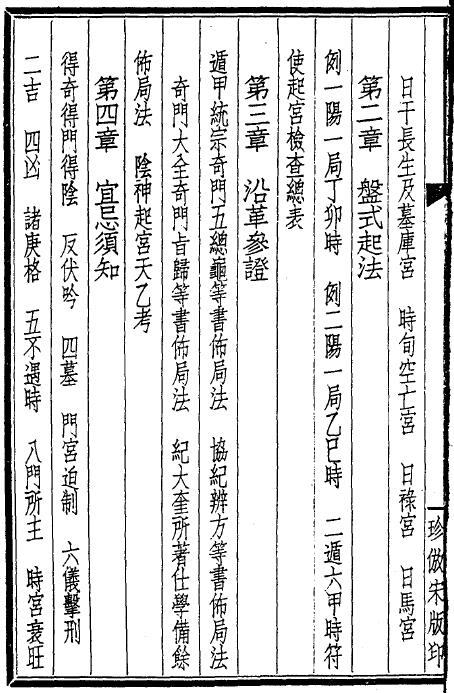 日干長生及墓庫宮　時旬空亡宮　日祿宮　日馬宮
第二章　盤式起法
例一陽一局丁卯時　例二陽一局乙巳時　二遁六甲時符
使起宮檢查總表
第三章　沿革參證
遁甲統宗奇門五總龜等書佈局法　協紀辨方等書佈局法
奇門大全奇門旨歸等書佈局法　紀大奎所著仕學備餘
佈局法　陰神起宮天乙考
第四章　宜忌須知
得奇得門得陰　反伏吟　四墓　門宮迫制　六儀擊刑
二吉　四凶　諸庚格　五不遇時　八門所主　時宮衰旺
珍倣宋版印